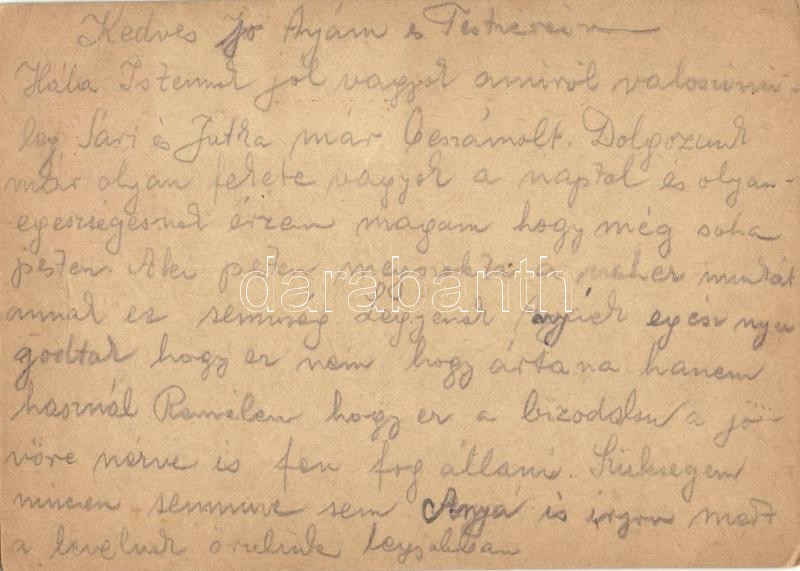 Kedves jo Anyám és Testvereim
Hála Istennek jól vagyok amiröl valoszinü-
leg Sári és Jutka már beszámolt. Dolgozunk
már olyan fekete vagyok a naptol és olyan
egeszségesnek érzem magam hogy még soha
pesten. Aki pesten megszokta a nehez munkát
annak ez semmiség. Legyenek anyáék egész nyu
godtak hogy ez nem hogy ártana hanem
használ Remélem hogy ez a bizodalom a jö-
vöre nézve is fen fog állani. Szüksegem
nincsen semmire sem Anyá is irjon mert
a levélnek örülünk legjobban
darabanth